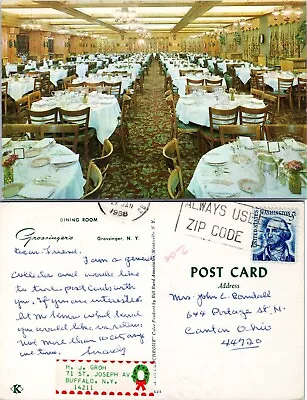 DINING ROOM
Grossinger's
Grossinger, N. Y.
Dear Friend,
I am a general
collector and would like
to trade post cards with
you. If you are interested,
let me know what kind
you would like in return
not more than 10 at any
one time. Sincerely
H. J. GROH
71 ST. JOSEPH AV.
BUFFALO, N.Y.
14211
K
JAN
1968
ALWAYS USE
ZIP CODE
WASHINGTON
5¢
UNITED STATES
POST CARD
Address
Mrs. John L. Randall
644 Portage St. N.
Canton Ohio
44720